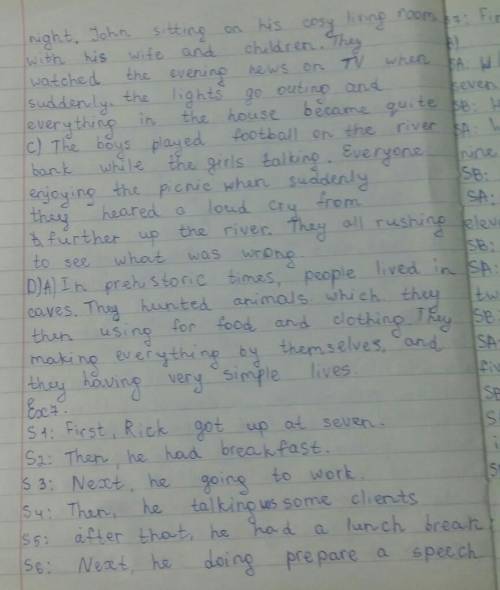 night. John sitting on his cosy living room
with his wife and children. They
watched the evening news on TV when
suddenly. the lights go outing and
everything in the house became quite
C) The boys played football on the river
bank while the girls talking. Everyone
enjoying the picnic when suddenly
they heared a loud cry from
further up the river. They all rushing
to see what was wrong.
D)A) In prehistoric times, people lived in
caves. They hunted animals which they
then using for food and clothing. They
making everything by themselves, and
they having very simple lives.
Ex7.
S1: First, Rick got up at seven.
S2: Then, he had breakfast.
S3: Next, he going to work.
S4: Then, he talking some clients
S5: after that, he had a lunch break
S6: Next, he doing prepare a speech
SA: W
seven
SB:
SA:
nine
SB:
SA:
eleve
SB:
SA:
tw
SB
SA
fiv